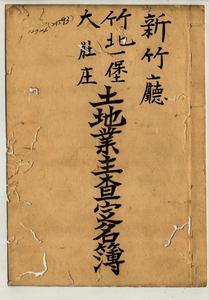 新竹廳
竹北一堡
大肚庄
土地業主查定名簿